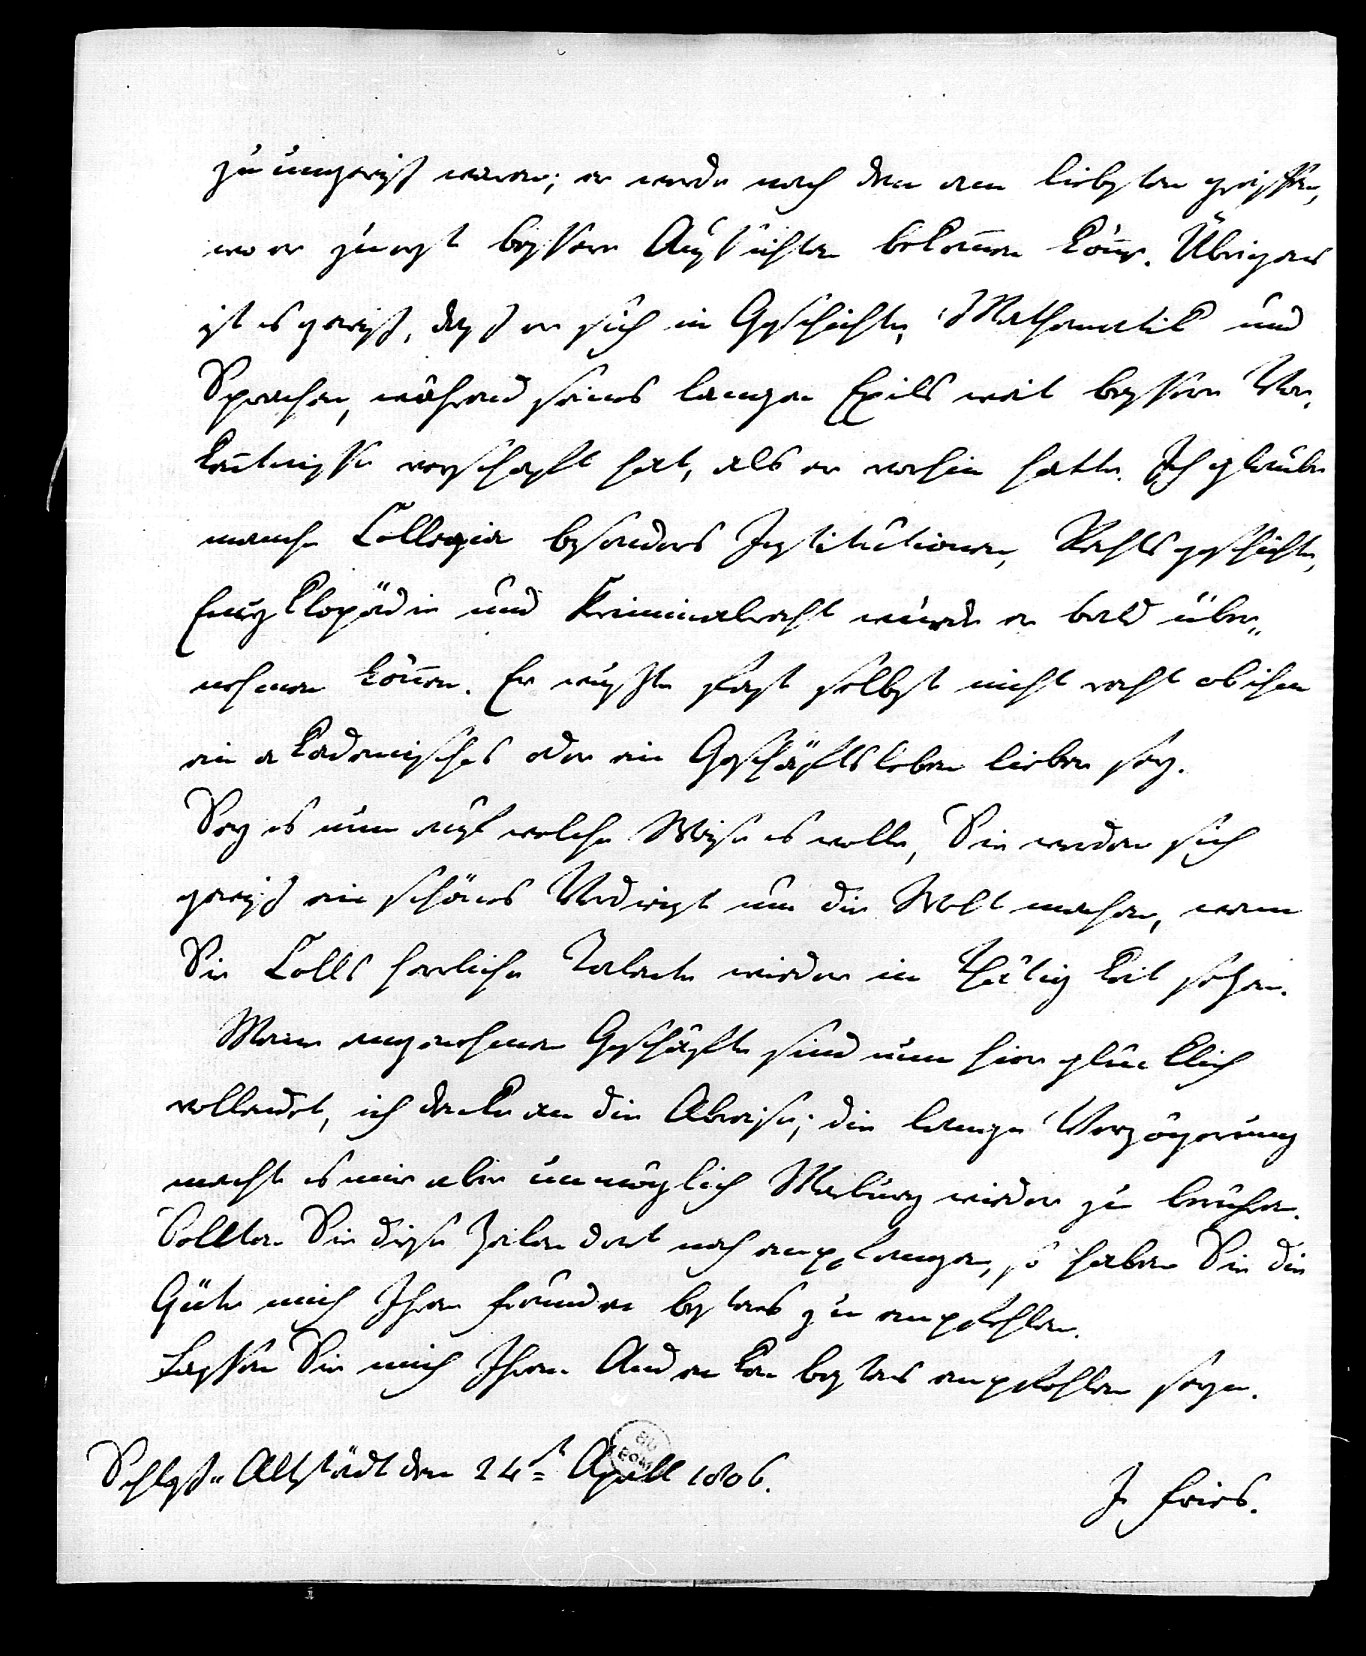 zu ungewiß wären; er werde nach dem am liebsten greiffen,
wo er zuerst bessere Aussichten bekom̄en kön̄e. Übrigens
ist es gewiß, daß er sich in Geschichte, Mathematik und
Sprachen, während seines langen Exils weit bessere Vor-
ken̄tnisse verschafft hat, als er vorhin hatte. Ich glaube
manche Collegia besonders Institutionen, Rechtsgeschichte,
Encyklopädie und Kriminalrecht würde er bald über„
nehmen kön̄en. Er wußte fast selbst nicht recht ob ihm
ein akademisches oder ein Geschäftsleben lieber sey.
Sey es nun auf welche Weise es wolle, Sie werden sich
gewiß ein schönes Verdienst um die Welt machen, wenn
Sie Lolls herrliche Talente wieder in Thätigkeit setzen.
Meine angenehmen Geschäfte sind nun hier glücklich
vollendet, ich denke an die Abreise; die lange Verzögerung
macht es mir aber unmöglich Marburg wieder zu berühren.
Sollten Sie diese Zeilen dort noch empfangen, so haben Sie die
Güte mich Ihren Freunden bestens zu empfehlen.
Lassen Sie mich Ihrem Andenken bestens empfohlen seyn.
Schloß Altstädt den 24st April 1806.
J. Fries.